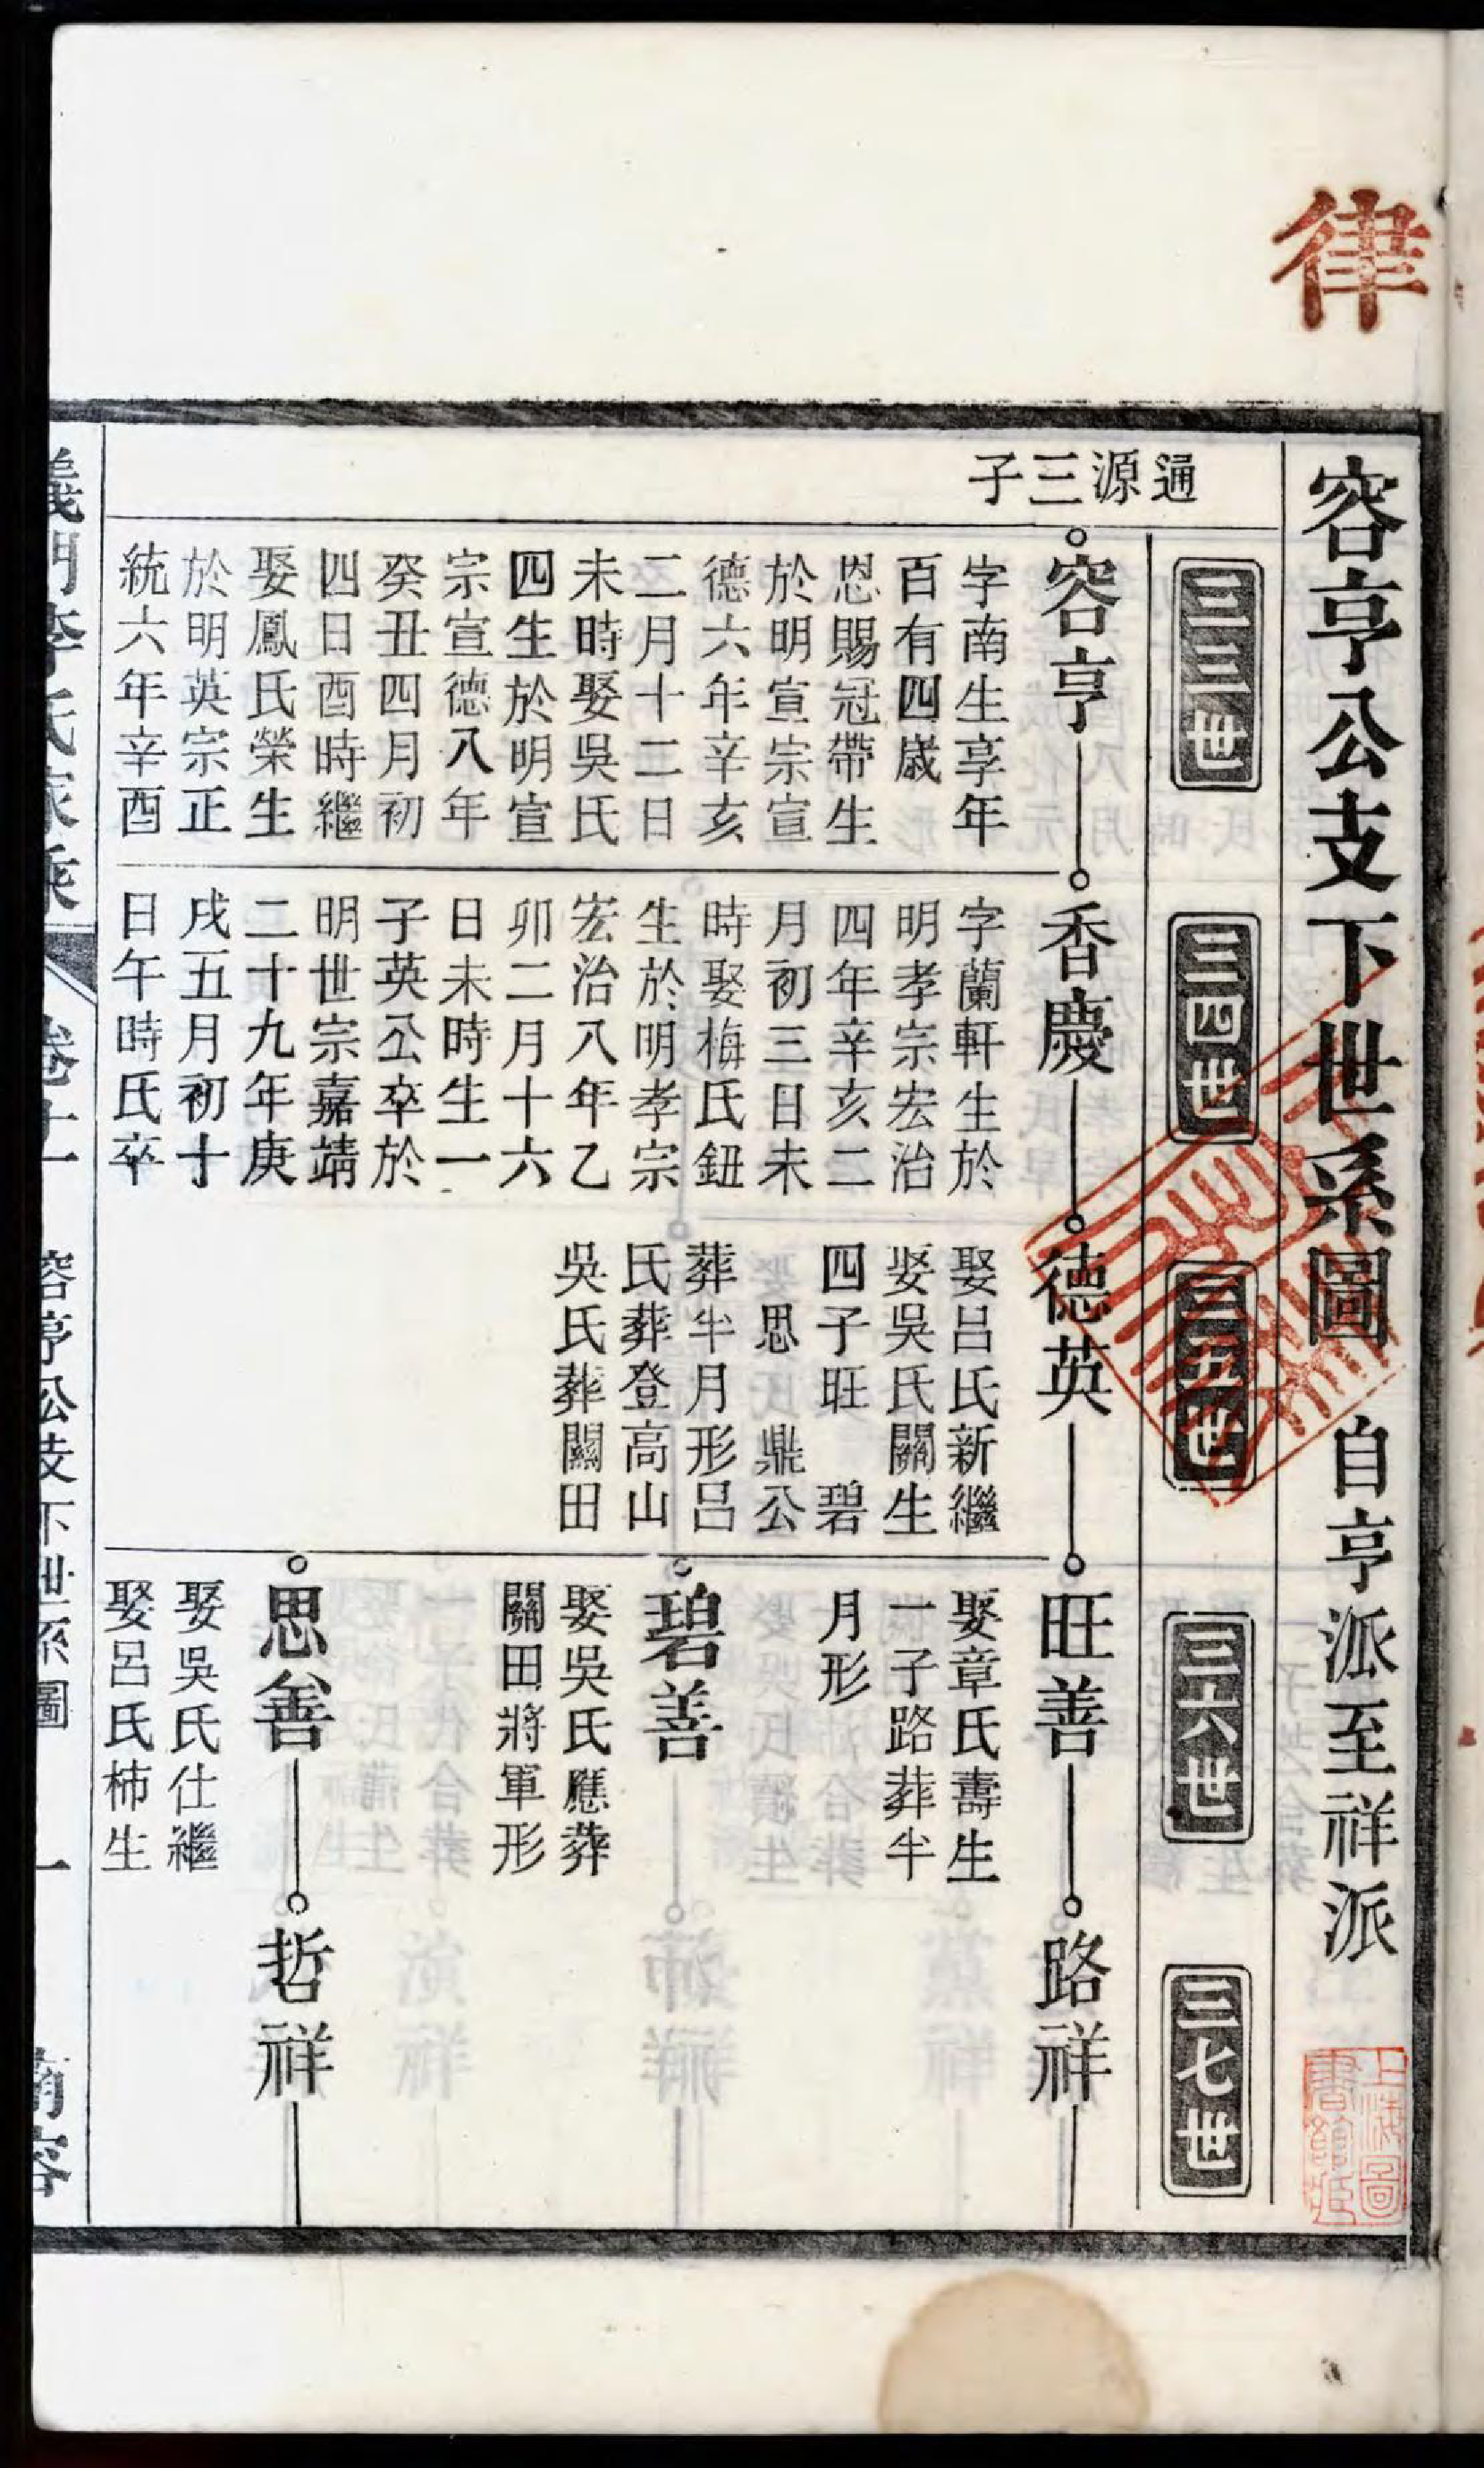 律
容亨公支下世系圖 自亨派至祥派
三三世
三四世
三五世
三六世
三七世
通源三子
容亨
字南生享年
百有四歲
恩賜冠帶生
於明宣宗宣
德六年辛亥
二月十二日
未時娶吳氏
四生於明宣
宗宣德八年
癸丑四月初
四日酉時繼
娶鳳氏榮生
於明英宗正
統六年辛酉
香慶
字蘭軒生於
明孝宗宏治
四年辛亥二
月初三日未
時娶梅氏鈕
生於明孝宗
宏治八年乙
卯二月十六
日未時生一
子英公卒於
明世宗嘉靖
二十九年庚
戌五月初十
日午時氏卒
德英
娶呂氏新繼
娶吳氏關生
四子旺 碧
思 鼎公
葬半月形呂
氏葬登高山
吳氏葬關田
旺善
娶章氏壽生
一子路葬半
月形
碧善
娶吳氏應葬
關田將軍形
思善
娶吳氏仕繼
娶呂氏柿生
路祥
哲祥
義門李氏家乘 卷十一 容亨公支下世系圖 一 南容
上海圖
書館藏